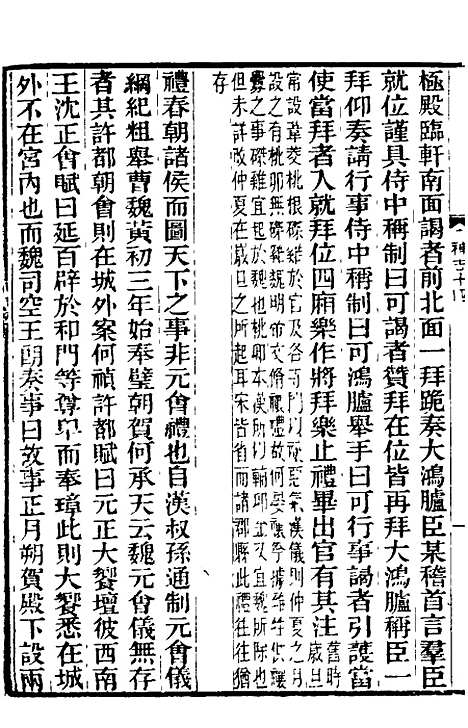 極殿臨軒南面謁者前北面一拜跪奏大鴻臚臣某稽首言羣臣
就位謹具侍中稱制曰可謁者贊拜在位皆再拜大鴻臚稱臣一
拜仰奏請行事侍中稱制曰可鴻臚舉手曰可行事謁者引護當
使當拜者入就拜位四廂樂作將拜樂止禮畢出官有其注
舊時歲旦
常設葦茭桃梗磔雞於宮及百寺門以禳惡氣漢儀則仲夏之月
設之有桃卯無磔雞魏明帝大脩禳禮故何晏禳祭據雞牲供禳
釁之事磔雞宜起於魏也桃卯本漢所以輔卯金又宜魏所除也
但未詳改仲夏在歲旦之所起耳宋皆省而諸郡縣此禮往往猶
存
禮春朝諸侯而圖天下之事非元會禮也自漢叔孫通制元會儀
綱紀粗舉曹魏黃初三年始奉璧朝賀何承天云魏元會儀無存
者其許都朝會則在城外案何禎許都賦曰元正大饗壇彼西南
王沈正會賦曰延百辟於和門等尊卑而奉璋此則大饗悉在城
外不在宮內也而魏司空王朗奏事曰故事正月朔賀殿下設兩